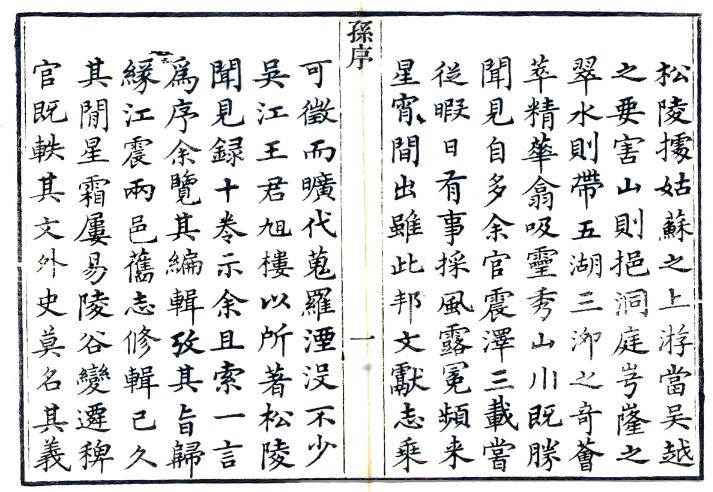 松陵據姑蘇之上游當吳越
之要害山則挹洞庭岢嶐之
翠水則帶五湖三泖之奇薈
萃精華翕吸靈秀山川既勝
聞見自多余官震澤三載嘗
從暇日有事採風露冕頻来
星霄間出雖此邦文獻志乗
孫序
一
可徵而曠代蒐羅湮沒不少
吳江王君旭樓以所著松陵
聞見録十卷示余且索一言
爲序余覽其編輯攷其旨歸
緣江震兩邑舊志修輯已久
其間星霜屢易陵谷變遷稗
官既軼其文外史莫名其義